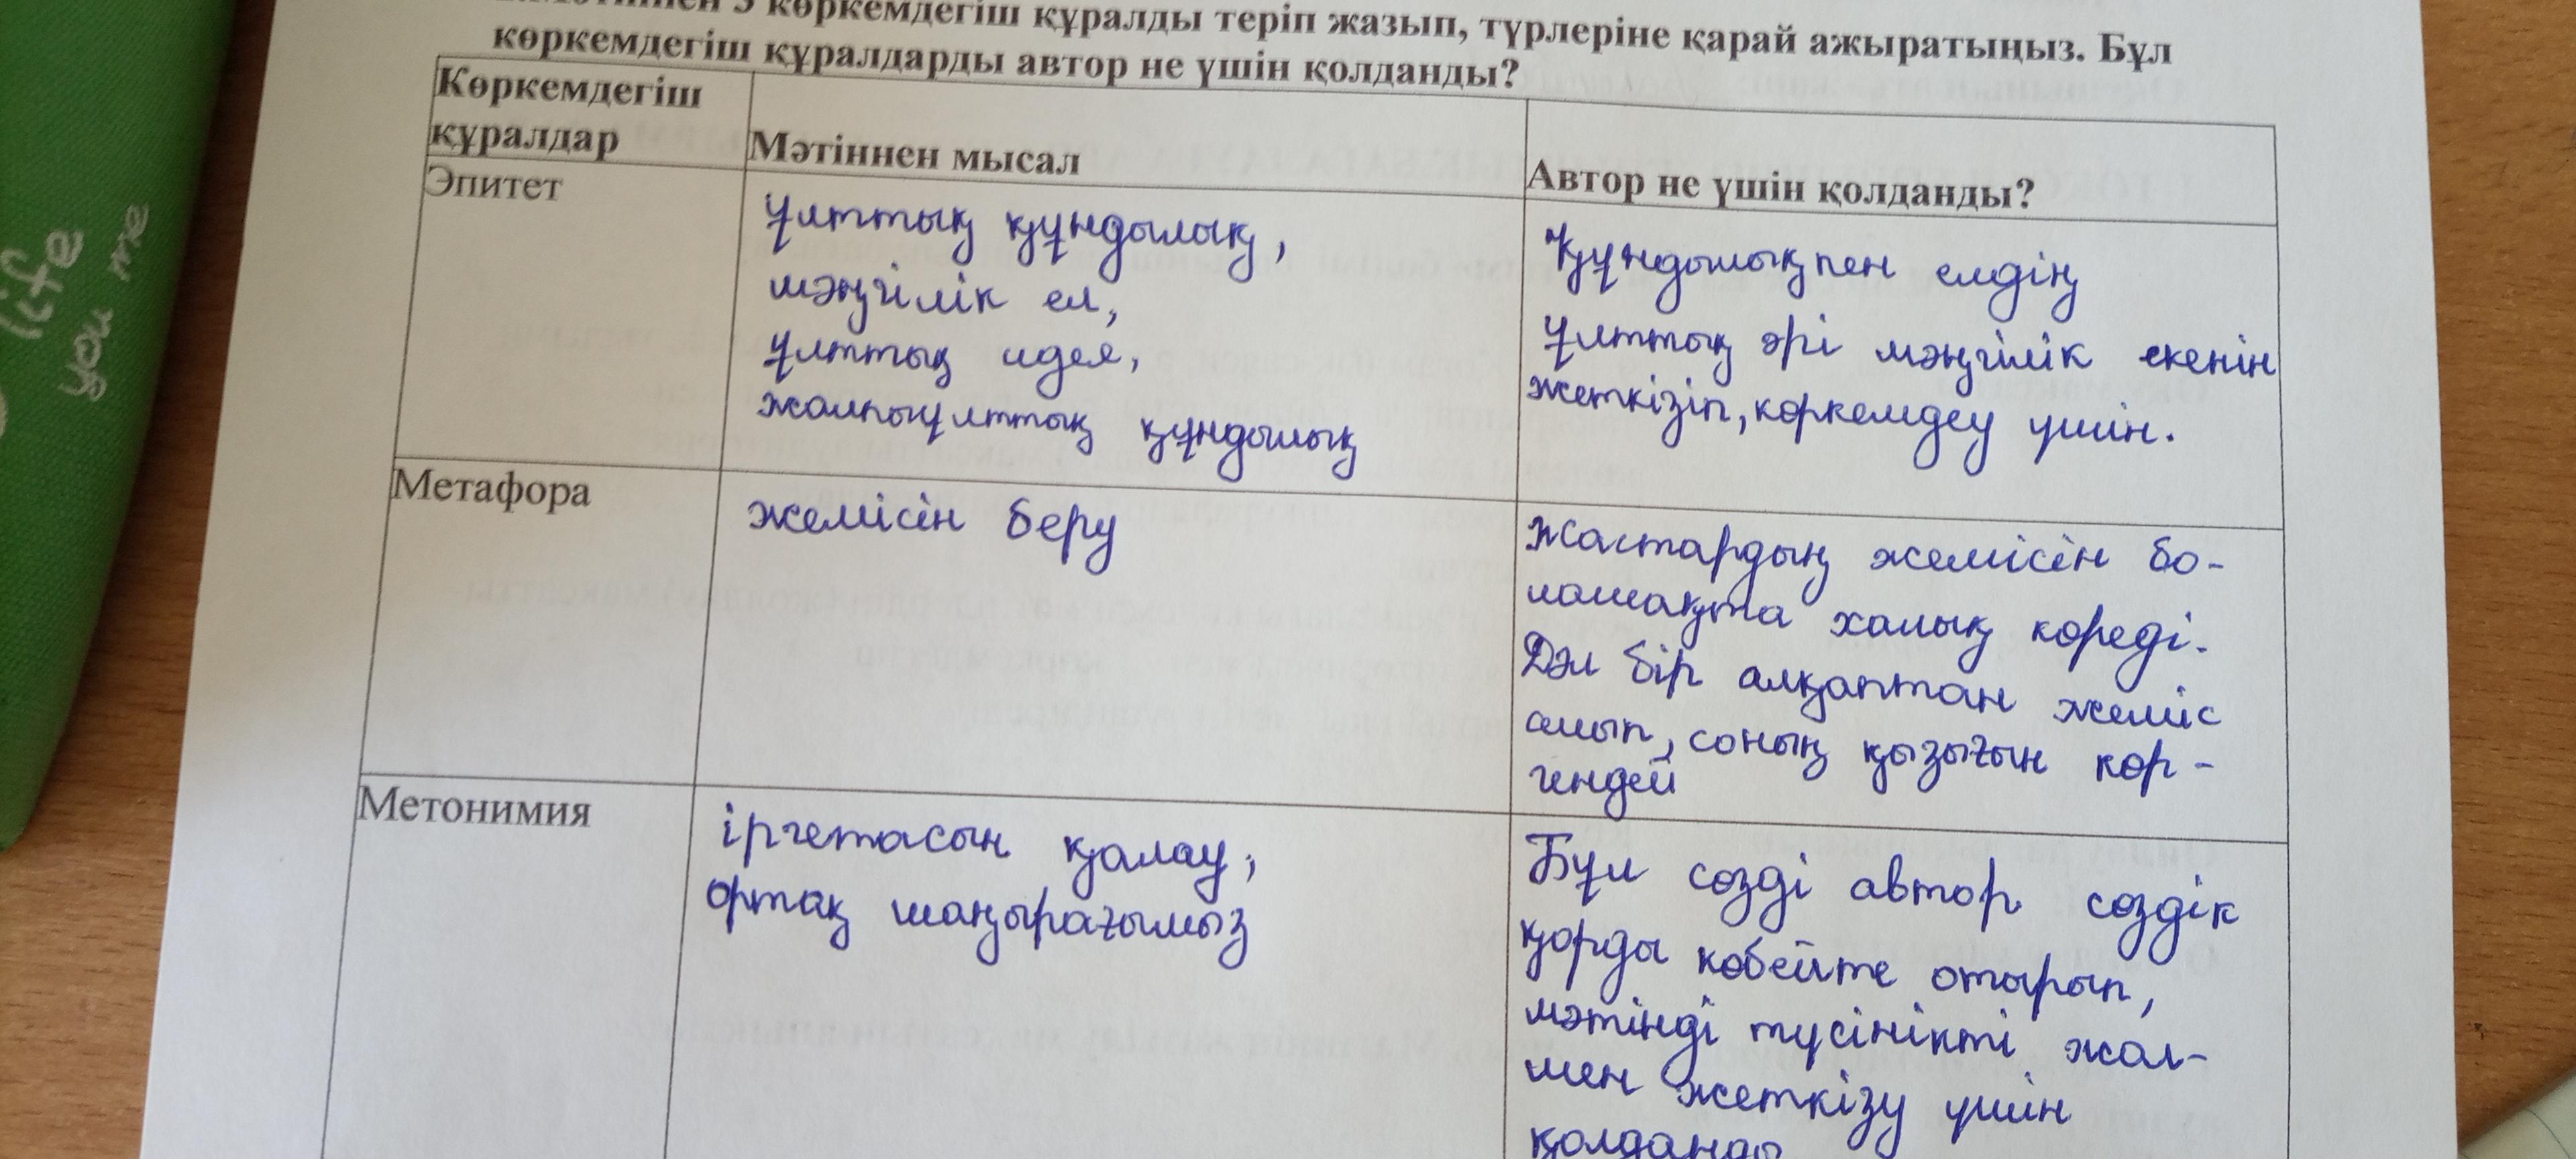 3 көркемдегіш құралды теріп жазып, түрлеріне қарай ажыратыңыз. Бұл
көркемдегіш құралдарды автор не үшін қолданды?
Көркемдегіш
құралдар
Мәтіннен мысал
Автор не үшін қолданды?
Эпитет
Ұлттық құндылық,
мәңгілік ел,
ұлттық идея,
жалпыұлттық құндылық
Құндылықпен елдің
ұлттық әрі мәңгілік екенін
жеткізіп, көркемдеу үшін.
Метафора
жемісін беру
Жастардың жемісін бо-
лашақта халық көреді.
Дәл бір алқаптан жеміс
алып, соның қызығын көр-
гендей
Метонимия
іргетасын қалау,
ортақ шаңырағымыз
Бұл сөзді автор сөздік
қорды көбейте отырып,
мәтінді түсінікті жол-
мен жеткізу үшін
қолданды
life
you me